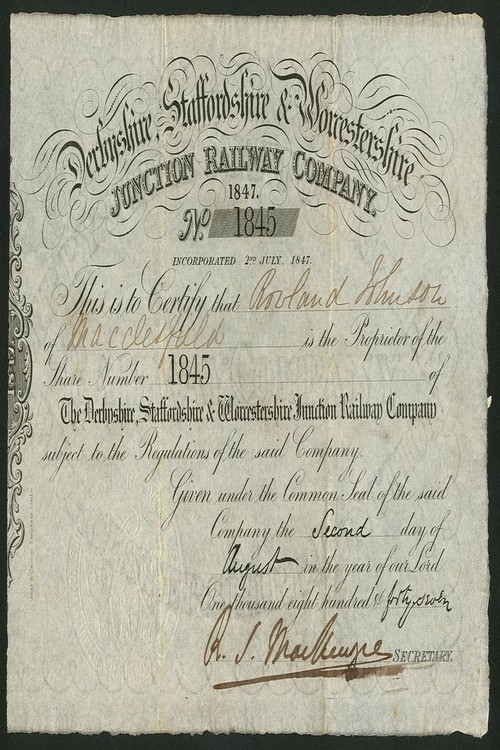 Derbyshire, Staffordshire & Worcestershire
JUNCTION RAILWAY COMPANY.
1847.
No. 1845
INCORPORATED 2ND JULY, 1847.
This is to Certify that Rowland Johnson
of Macclesfield is the Proprietor of the
Share Number 1845 of
The Derbyshire, Staffordshire & Worcestershire Junction Railway Company
subject to the Regulations of the said Company.
Given under the Common Seal of the said
Company the Second day of
August in the year of our Lord
One thousand eight hundred & forty seven
R. S. MacKenzie SECRETARY.